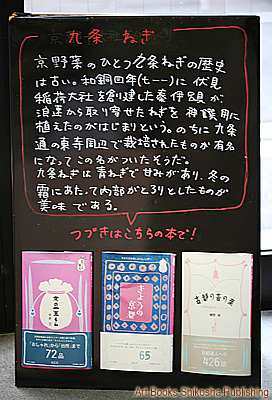 京九条ねぎ
京野菜のひとつ九条ねぎの歴史
は古い。和銅四年(七一一)に伏見
稲荷大社を創建した秦伊呂具が、
浪速から取り寄せたねぎを神饌用に
植えたのがはじまりという。のちに九条
通の東寺周辺で栽培されたものが有名
になってこの名がついたそうだ。
九条ねぎは青ねぎで甘みがあり、冬の
霜にあたって内部がとろりとしたものが
美味である。
つづきはこちらの本で!
京の
「おしゃれ」から「台所」まで
72品
きょうの
京都
65
古都の香の菜
京都達人への
426語
Art Books Shikosha Publishing